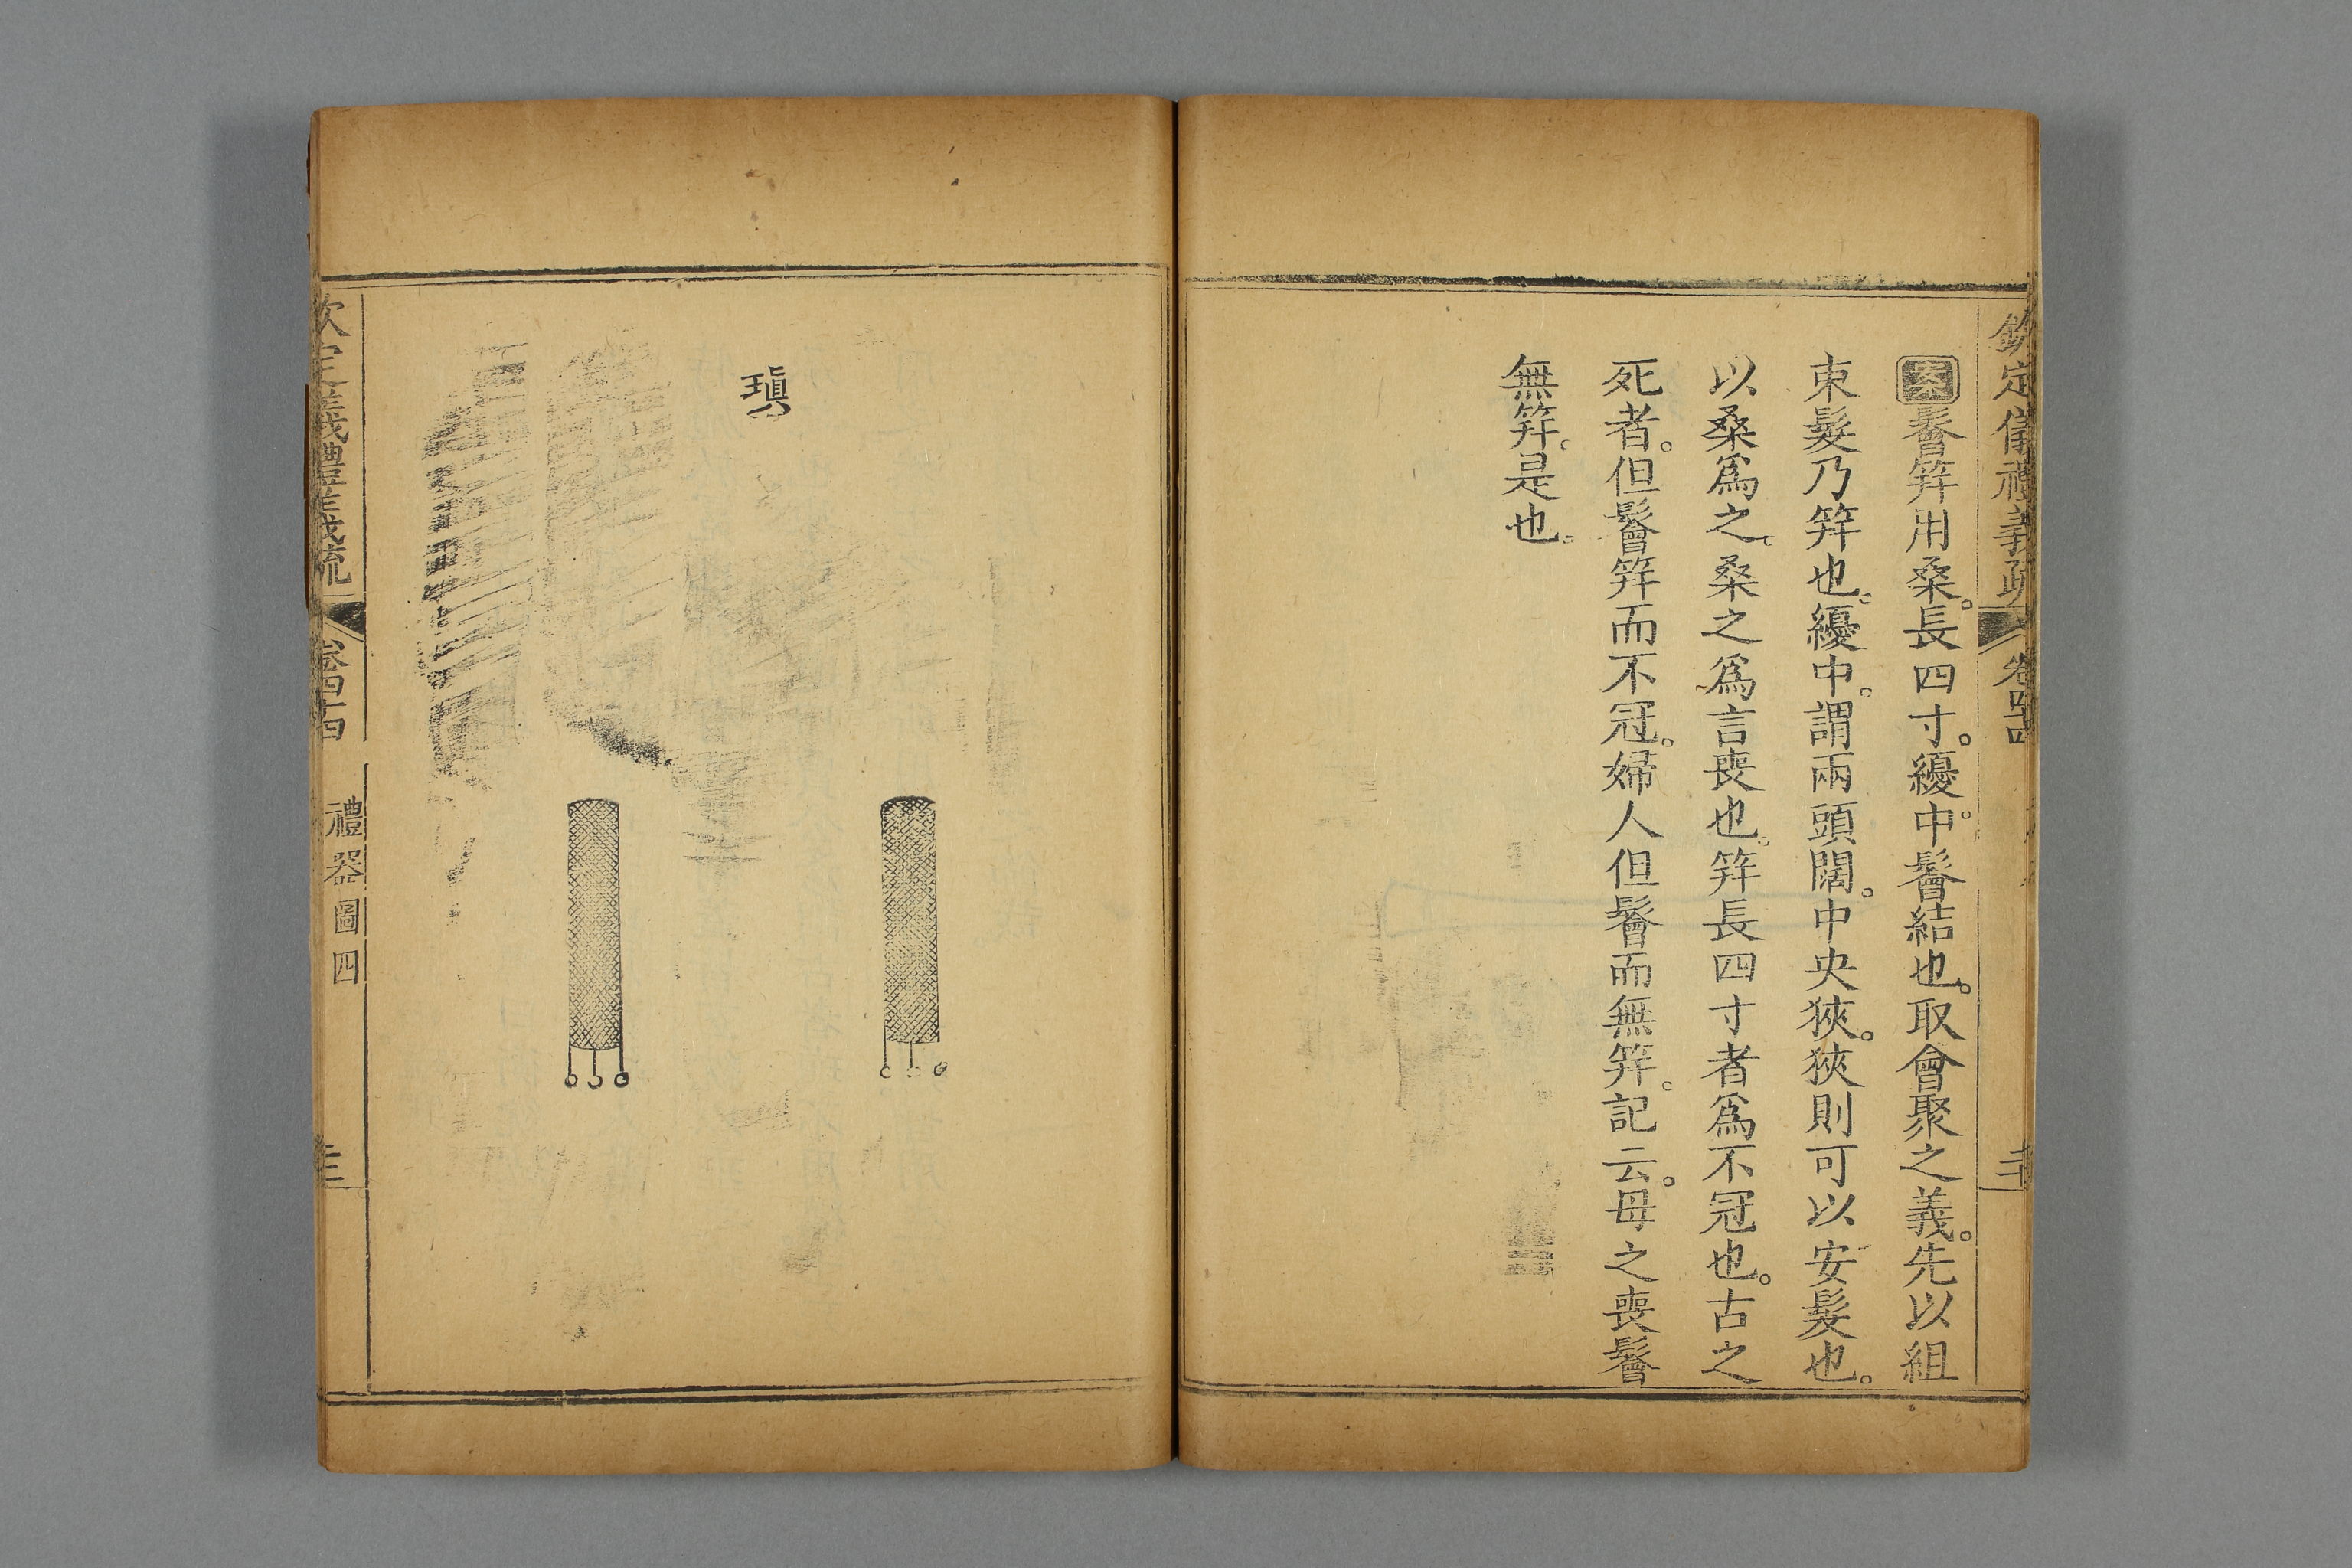 欽定儀禮義疏 卷四十四
案鬠笄用桑。長四寸。纋中。鬠結也。取會聚之義。先以組
束髮乃笄也。纋中。謂兩頭闊。中央狹。狹則可以安髮也。
以桑爲之。桑之爲言喪也。笄長四寸者爲不冠也。古之
死者。但鬠笄而不冠。婦人但鬠而無笄。記云。母之喪鬠
無笄。是也。
瑱
欽定義禮義疏 卷四十四 禮器圖四